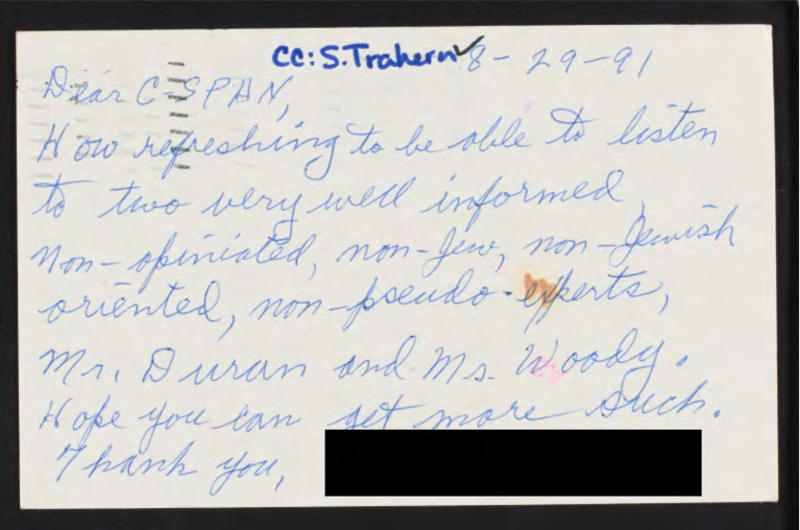 CC: S. Trahern✓ 8-29-91
Dear C-SPAN,
How refreshing to be able to listen
to two very well informed,
non-opiniated, non-Jew, non-Jewish
oriented, non-pseudo-experts,
Mr. Duran and Ms. Woody.
Hope you can get more such.
Thank you,